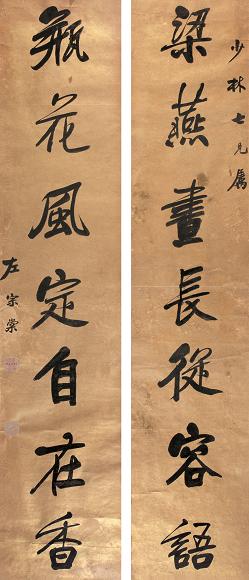 少林七兄属
梁燕昼長從容語
瓶花風定自在香
左宗棠